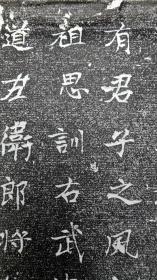 有君子之風
祖思訓右武
道左衛郎將